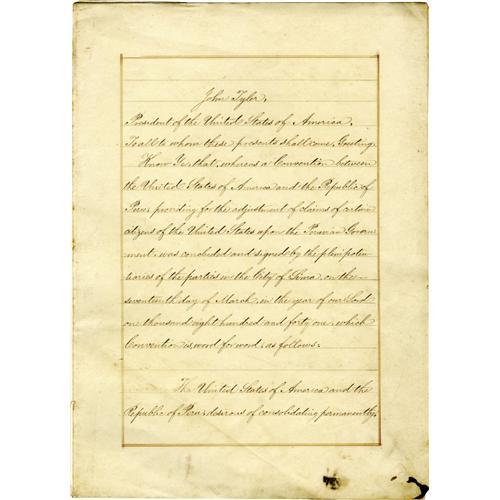 John Tyler,
President of the United States of America,
To all to whom these presents shall come, Greeting:
Know Ye, that, whereas a Convention between
the United States of America and the Republic of
Peru, providing for the adjustment of claims of certain
citizens of the United States upon the Peruvian Govern-
ment, was concluded and signed by the plenipoten-
tiaries of the parties in the City of Lima, on the
seventeenth day of March, in the year of our Lord
one thousand eight hundred and forty one, which
Convention is, word for word, as follows:
The United States of America and the
Republic of Peru, desirous of consolidating permanently,